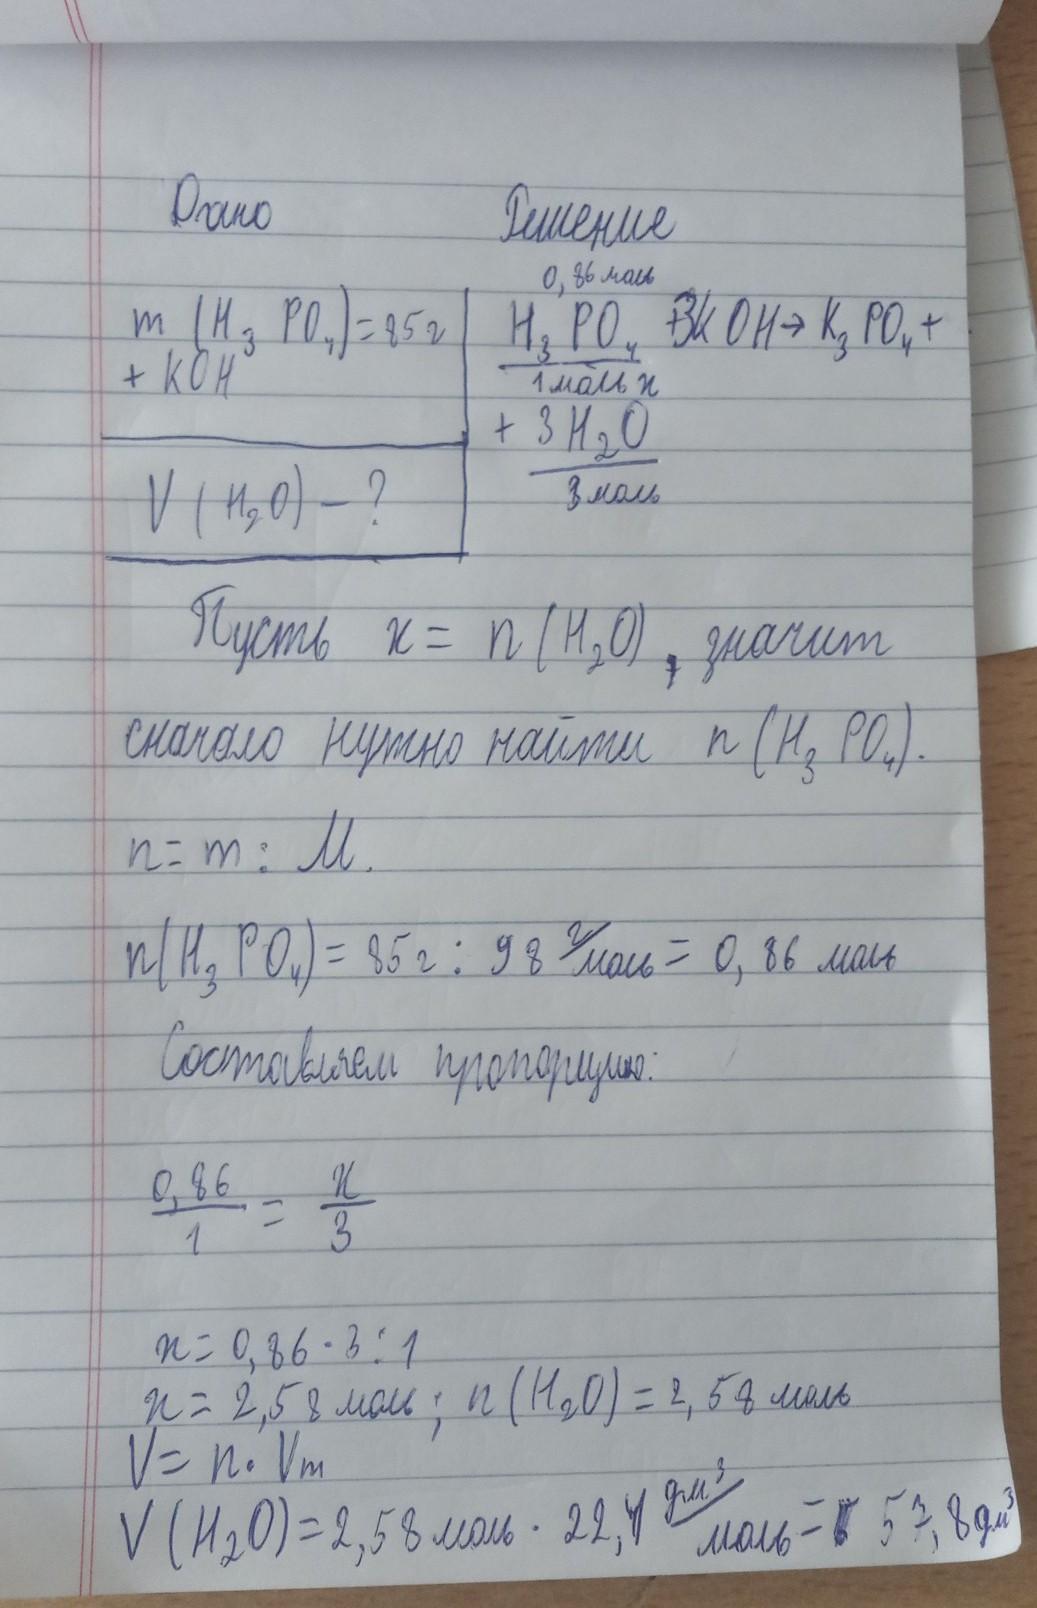 Дано
Решение
m (H₃PO₄) = 85 г
+ KOH
V (H₂O) – ?
0,86 моль
H₃PO₄ + 3KOH → K₃PO₄ +
1 моль x
+ 3H₂O
3 моль
Пусть x = n (H₂O), значит
сначало нужно найти n (H₃PO₄).
n = m : M.
n(H₃PO₄) = 85 г : 98 г/моль = 0,86 моль
Составляем пропорцию:
0,86/1 = x/3
x = 0,86 · 3 : 1
x = 2,58 моль; n (H₂O) = 2,58 моль
V = n · Vm
V (H₂O) = 2,58 моль · 22,4 дм³/моль = 57,8 дм³